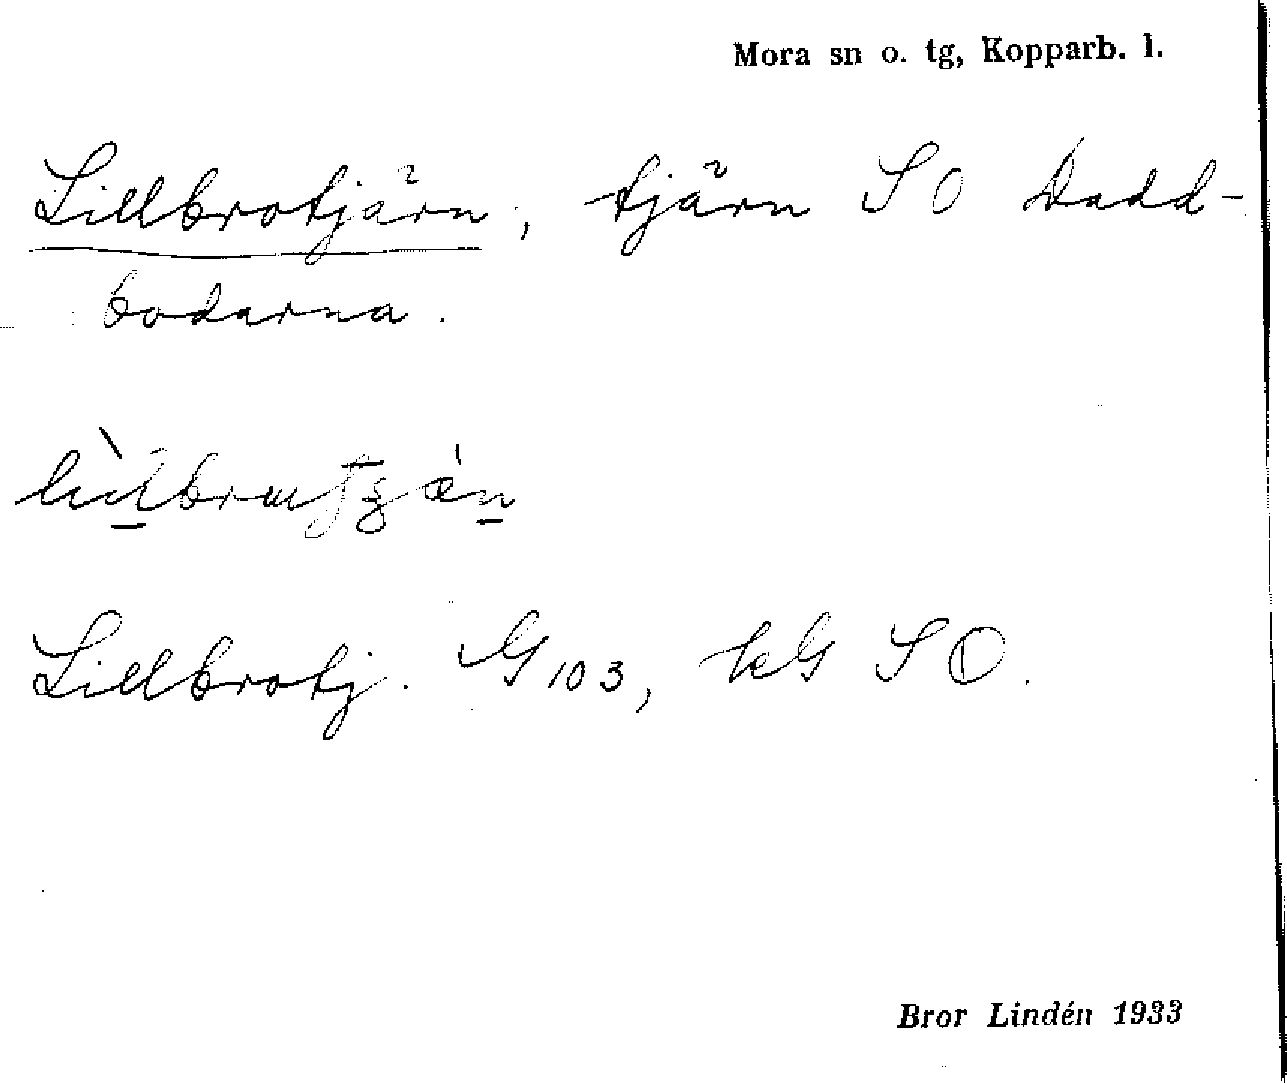 Mora sn o. tg, Kopparb. l.
Lillbrotjärn, tjärn SO Dadd-
bodarna.
Lillbrotj. G 103, kG SO.
Bror Lindén 1933